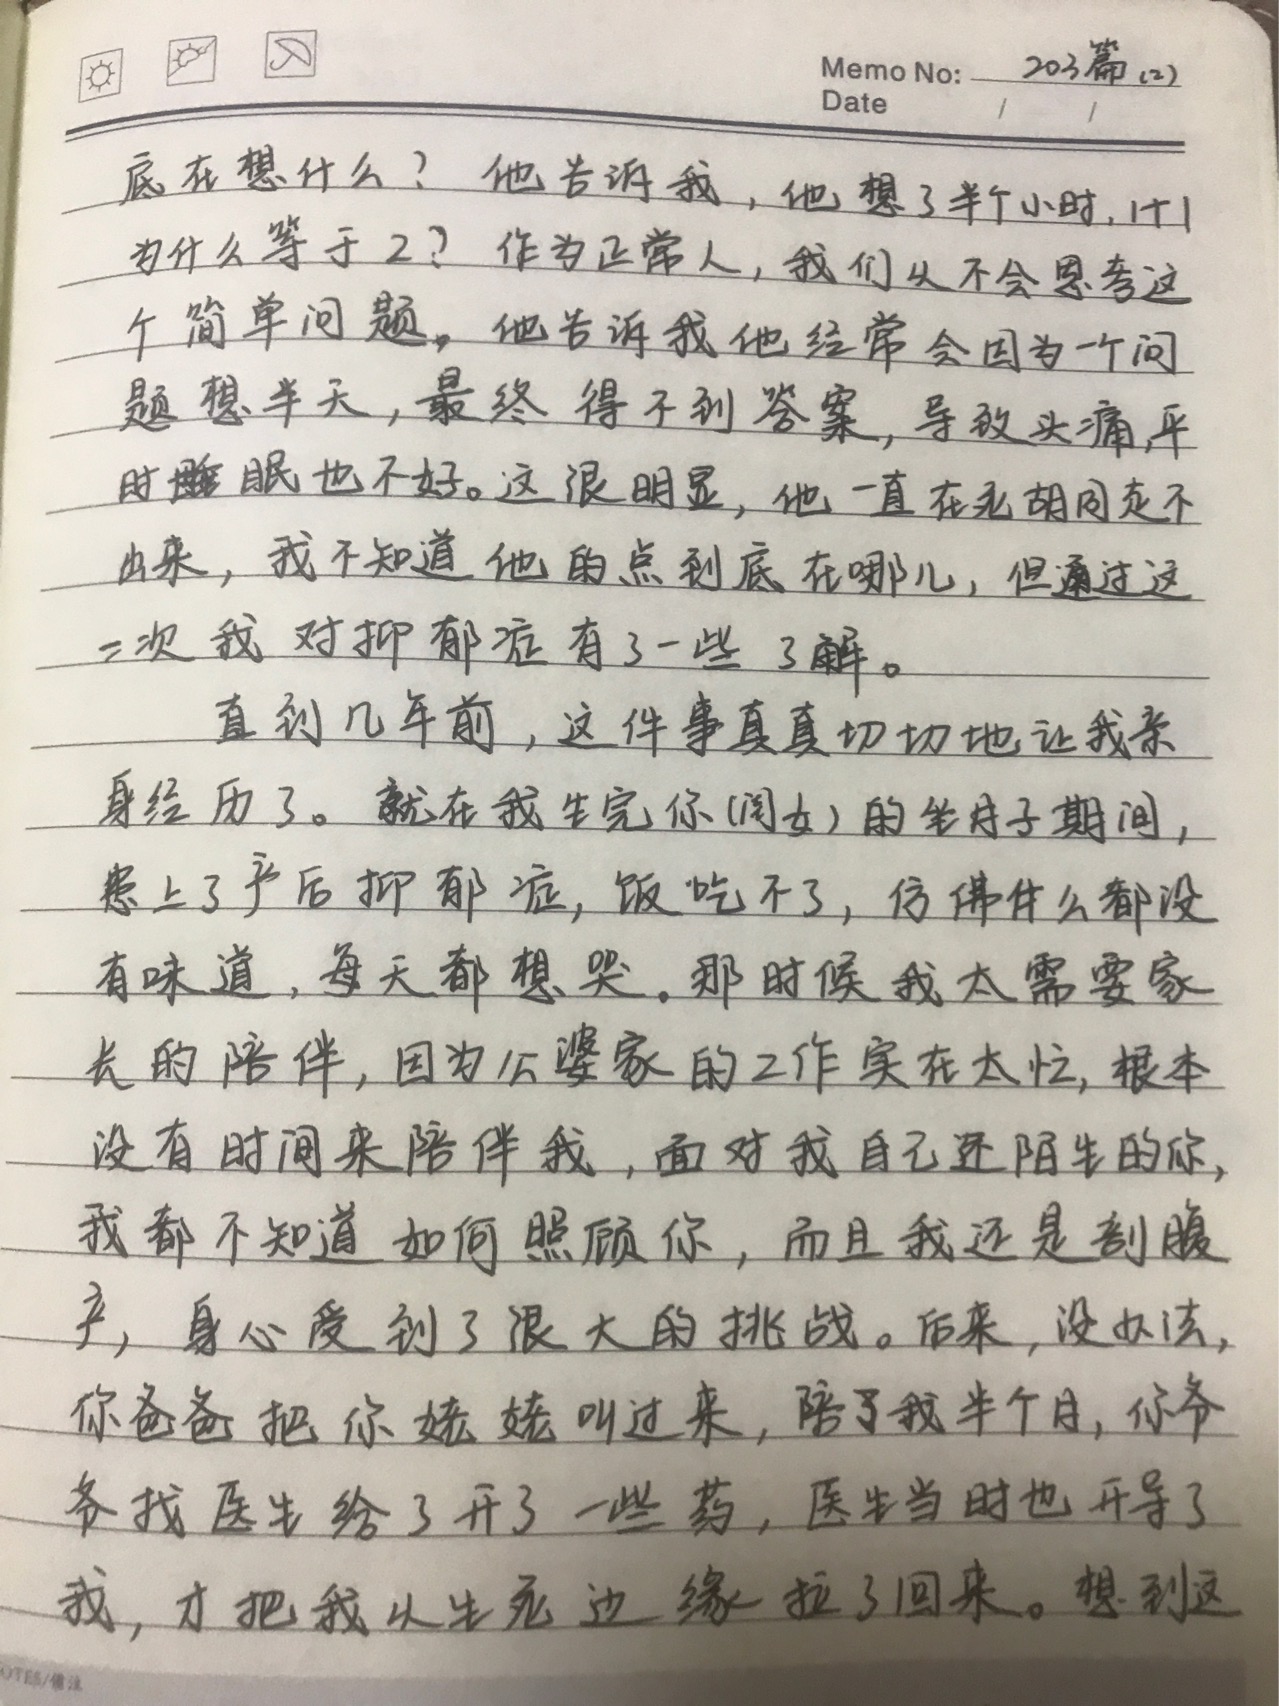 Memo No: 203篇(2)
Date / /
底在想什么？他告诉我，他想了半个小时，1+1
为什么等于2？作为正常人，我们从不会思考这
个简单问题。他告诉我他经常会因为一个问
题想半天，最终得不到答案，导致头痛，平
时睡眠也不好。这很明显，他一直在死胡同走不
出来，我不知道他的点到底在哪儿，但通过这
二次我对抑郁症有了一些了解。
直到几年前，这件事真真切切地让我亲
身经历了。就在我生完你(闺女)的坐月子期间，
患上了产后抑郁症，饭吃不了，仿佛什么都没
有味道，每天都想哭。那时候我太需要家
长的陪伴，因为公婆家的工作实在太忙，根本
没有时间来陪伴我，面对我自己还陌生的你，
我都不知道如何照顾你，而且我还是剖腹
产，身心受到了很大的挑战。后来，没办法，
你爸爸把你姥姥叫过来，陪了我半个月，你爷
爷找医生给了开了一些药，医生当时也开导了
我，才把我从生死边缘拉了回来。想到这
OTES/备注